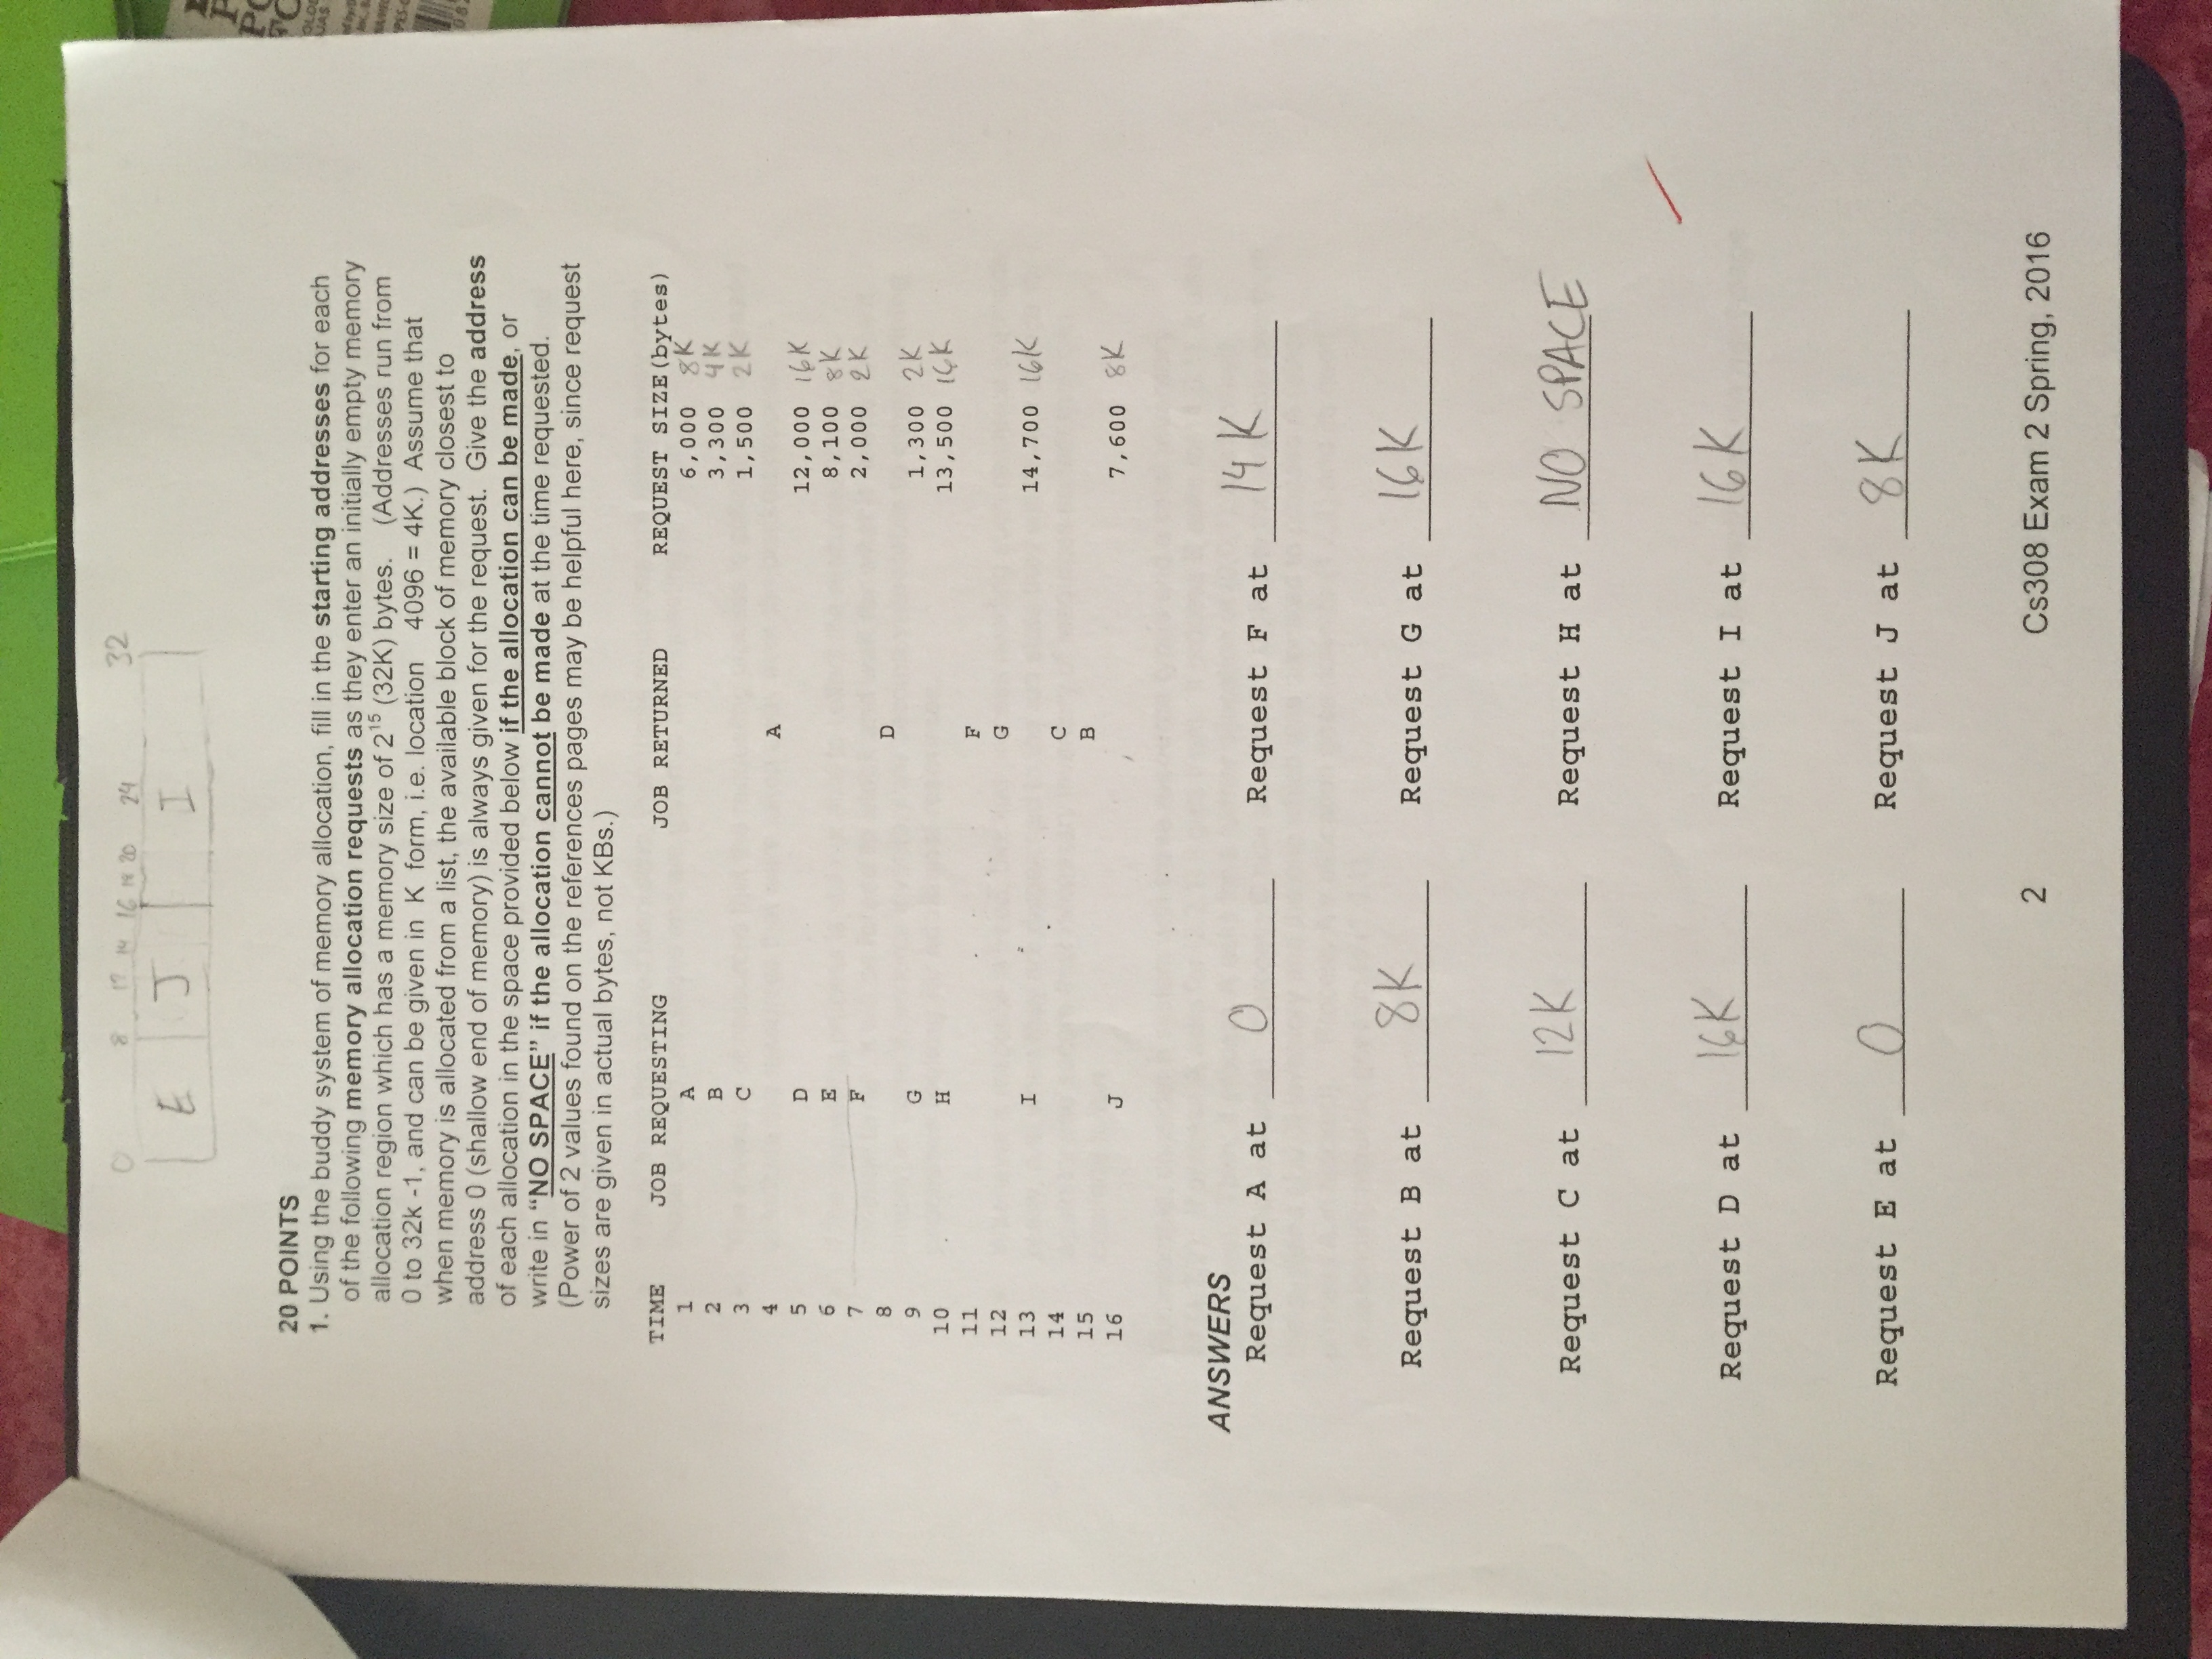 0 8 12 14 16 18 20 24 32
E J I
20 POINTS
1. Using the buddy system of memory allocation, fill in the starting addresses for each
of the following memory allocation requests as they enter an initially empty memory
allocation region which has a memory size of 2¹⁵ (32K) bytes. (Addresses run from
0 to 32k -1, and can be given in K form, i.e. location 4096 = 4K.) Assume that
when memory is allocated from a list, the available block of memory closest to
address 0 (shallow end of memory) is always given for the request. Give the address
of each allocation in the space provided below if the allocation can be made, or
write in “NO SPACE” if the allocation cannot be made at the time requested.
(Power of 2 values found on the references pages may be helpful here, since request
sizes are given in actual bytes, not KBs.)
TIME JOB REQUESTING JOB RETURNED REQUEST SIZE(bytes)
1 A 6,000 8K
2 B 3,300 4K
3 C 1,500 2K
4 A
5 D 12,000 16K
6 E 8,100 8K
7 F 2,000 2K
8 D
9 G 1,300 2K
10 H 13,500 16K
11 F
12 G
13 I 14,700 16K
14 C
15 B
16 J 7,600 8K
ANSWERS
Request A at 0 Request F at 14K
Request B at 8K Request G at 16K
Request C at 12K Request H at NO SPACE
Request D at 16K Request I at 16K
Request E at 0 Request J at 8K
2 Cs308 Exam 2 Spring, 2016